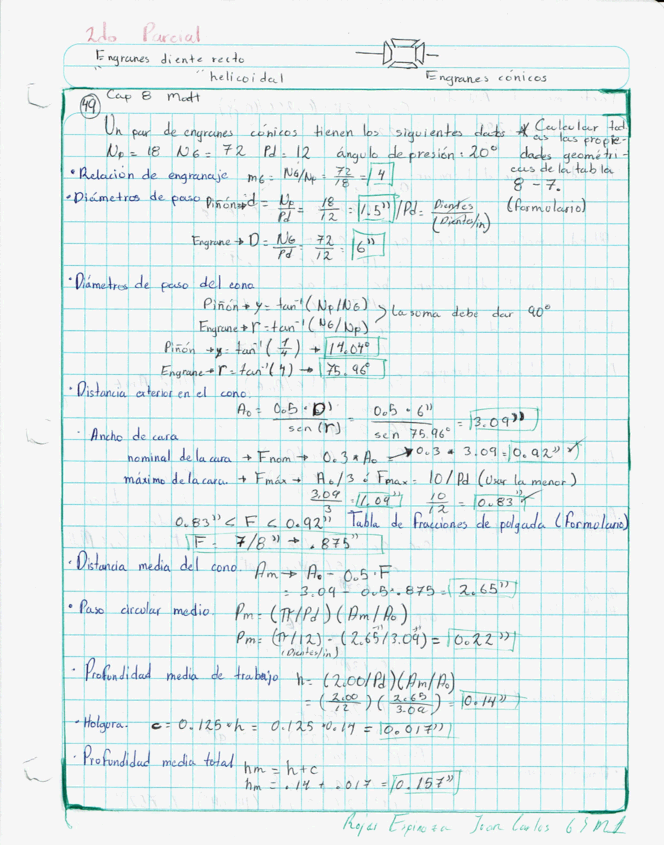 2do Parcial
Engranes diente recto
" " helicoidal
Engranes cónicos
49 Cap 8 Mott
Un par de engranes cónicos tienen los siguientes datos
Np = 18 NG = 72 Pd = 12 ángulo de presión: 20°
* Calcular tod
as las propie-
dades geométri-
cas de la tabla
8-7.
(formulario)
• Relación de engranaje mG = NG/Np = 72/18 = 4
• Diámetros de paso Piñón→ d = Np/Pd = 18/12 = 1.5" / Pd = Dientes/(Diente/in)
Engrane → D = NG/Pd = 72/12 = 6"
• Diámetros de paso del cono
Piñón → y = tan⁻¹ (Np/NG)
Engrane → r = tan⁻¹ (NG/Np)
> La suma debe dar 90°
Piñón → y = tan⁻¹ (1/4) → 14.04°
Engrane → r = tan⁻¹ (4) → 75.96°
• Distancia exterior en el cono.
Ao = 0.5 · D / sen (r) = 0.5 · 6" / sen 75.96° = 3.09"
• Ancho de cara
nominal de la cara → Fnom → 0.3 * Ao → 0.3 * 3.09 = 0.92" ✓
máximo de la cara → Fmáx → Ao/3 ó Fmax = 10/Pd (Usar la menor)
3.09/3 = 1.09" 10/12 = 0.83" ✓
0.83" < F < 0.92" Tabla de fracciones de pulgada (formulario)
F = 7/8" → .875"
• Distancia media del cono. Am → Ao - 0.5·F
= 3.09 - 0.5 · .875 = 2.65"
• Paso circular medio. Pm = (π/Pd)(Am/Ao)
Pm = (π/12) - (2.65"/3.09") = 0.22"
(Dientes/in)
• Profundidad media de trabajo h = (2.00/Pd)(Am/Ao)
= (2.00/12)(2.65/3.09) = 0.14"
• Holgura. c = 0.125 · h = 0.125 · 0.14 = 0.017"
• Profundidad media total hm = h + c
hm = .14 + .017 = 0.157"
Rojas Espinoza Juan Carlos